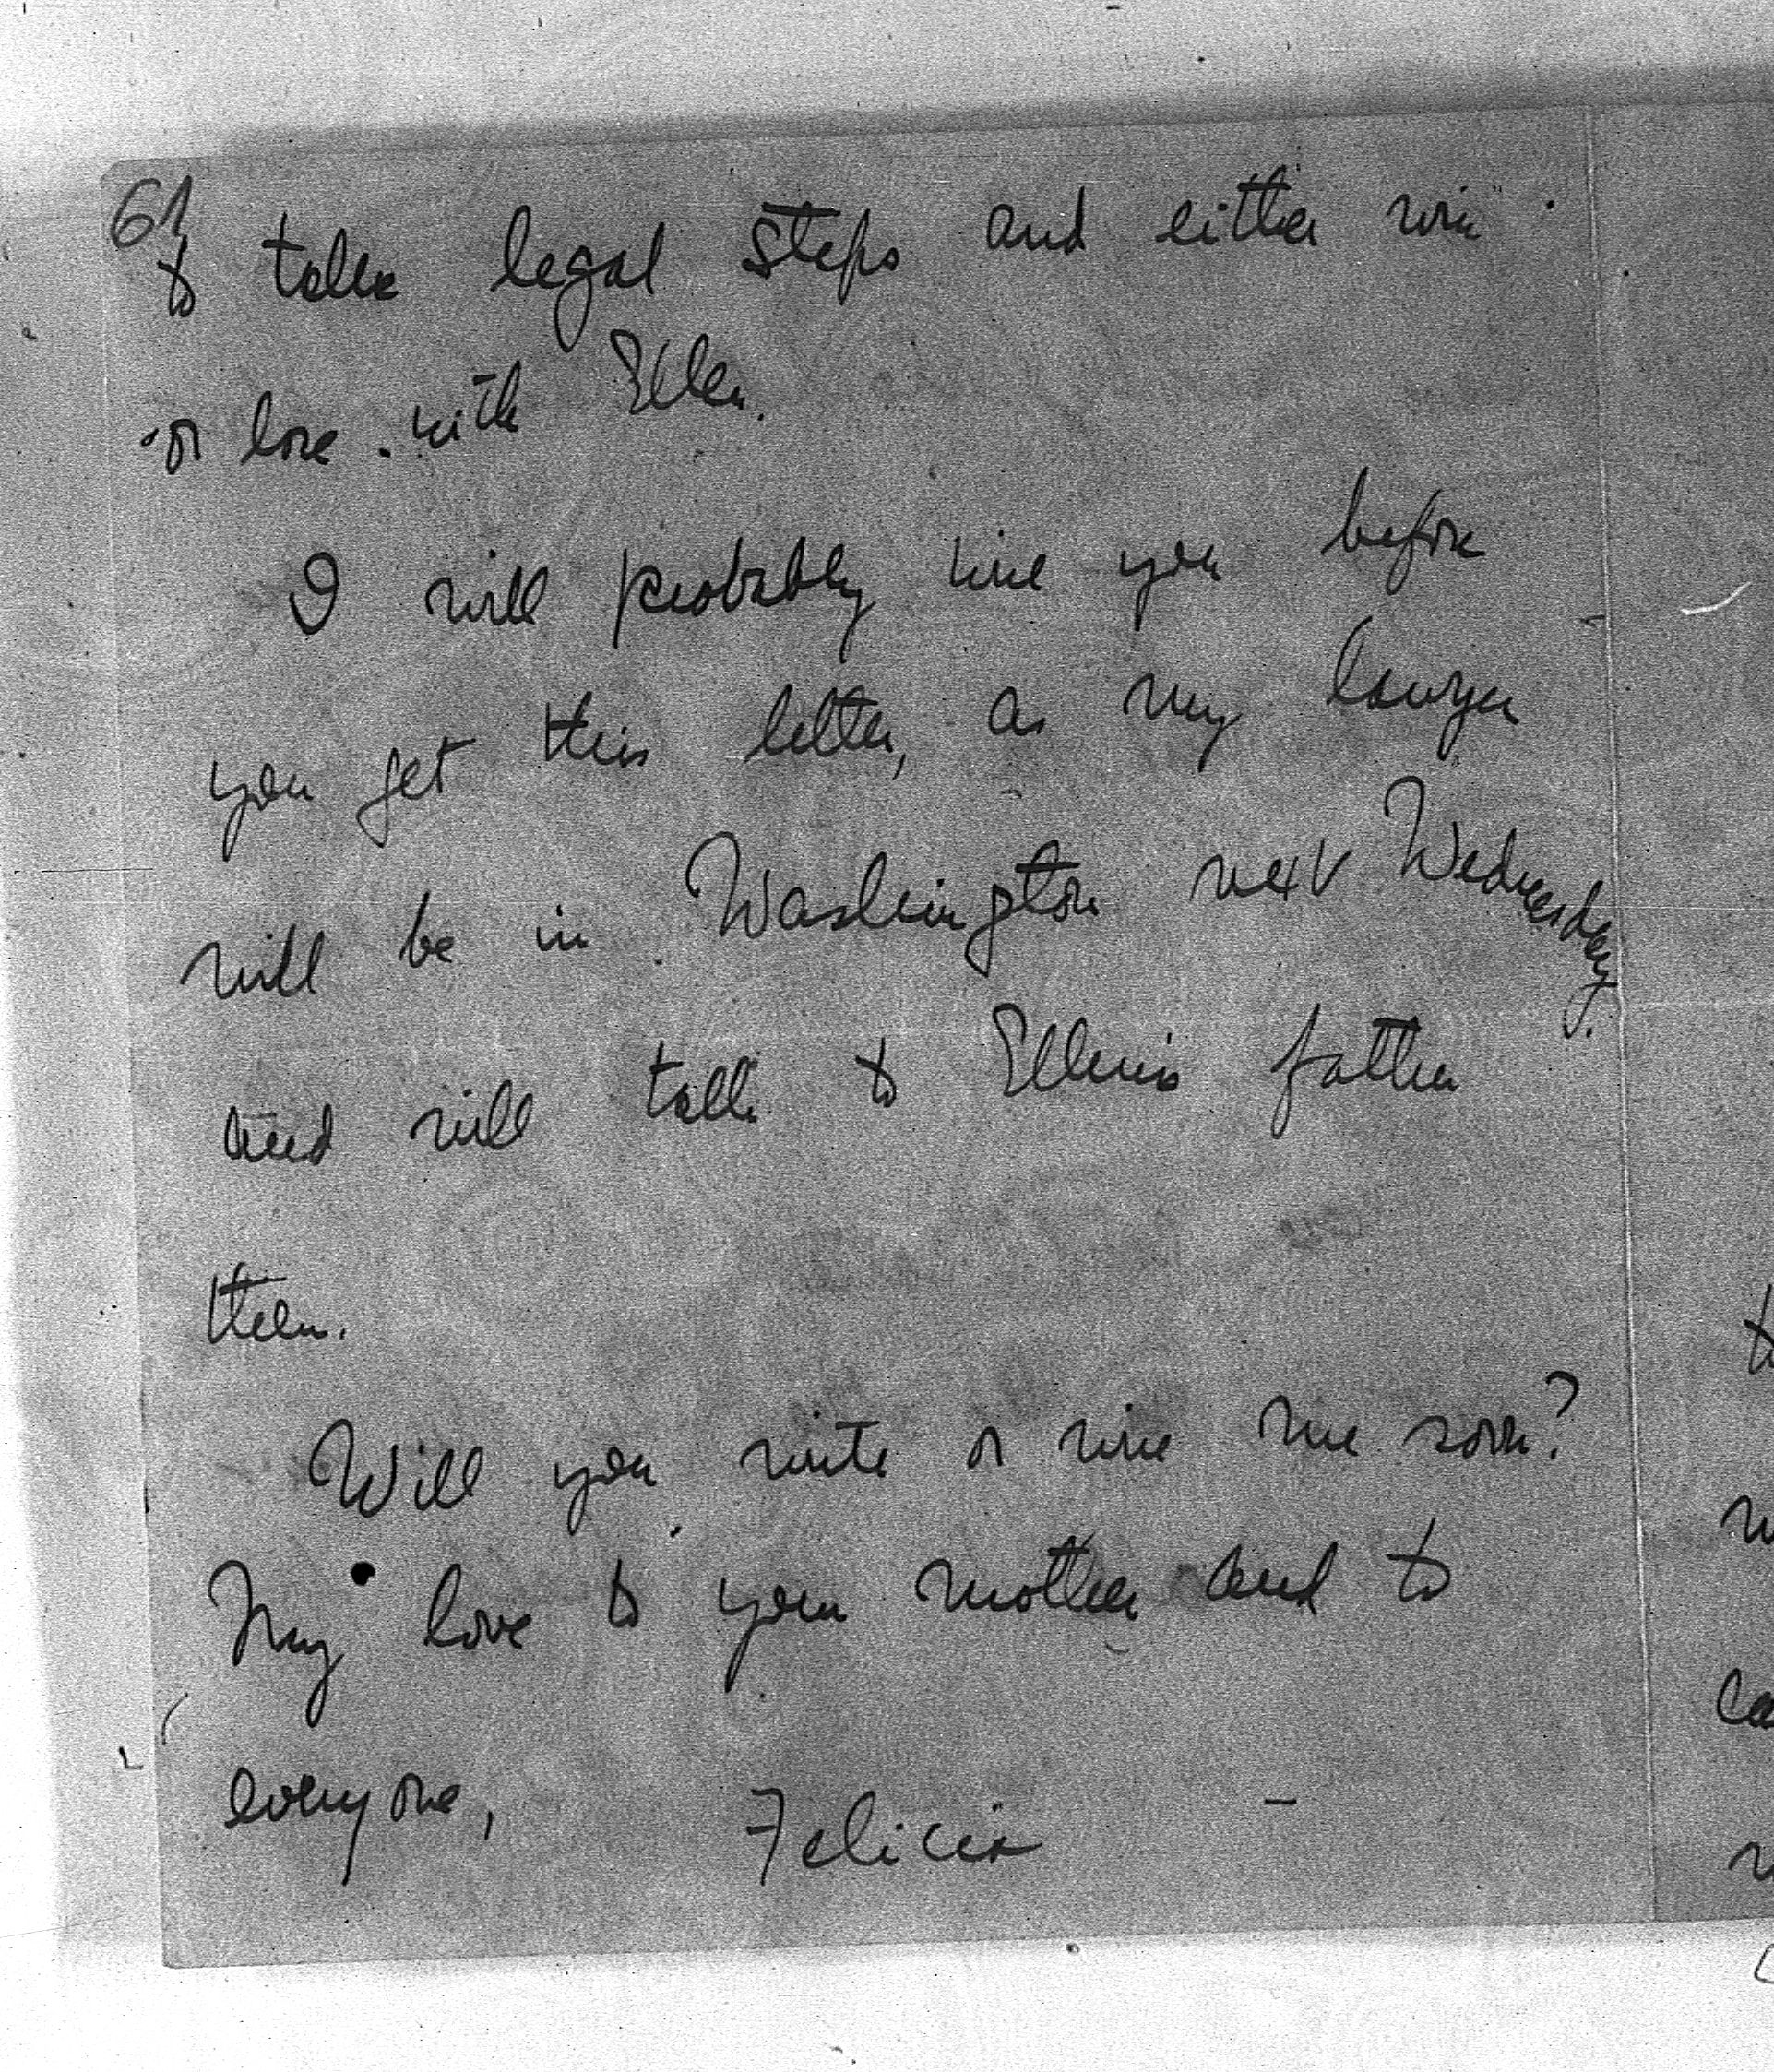 61
to take legal steps and either win
or lose with Ellen.
I will probably wire you before
you get this letter, as my lawyer
will be in Washington next Wednesday.
and will talk to Ellen's father
then.
Will you write or wire me soon?
My love to your mother and to
everyone,
Felicia